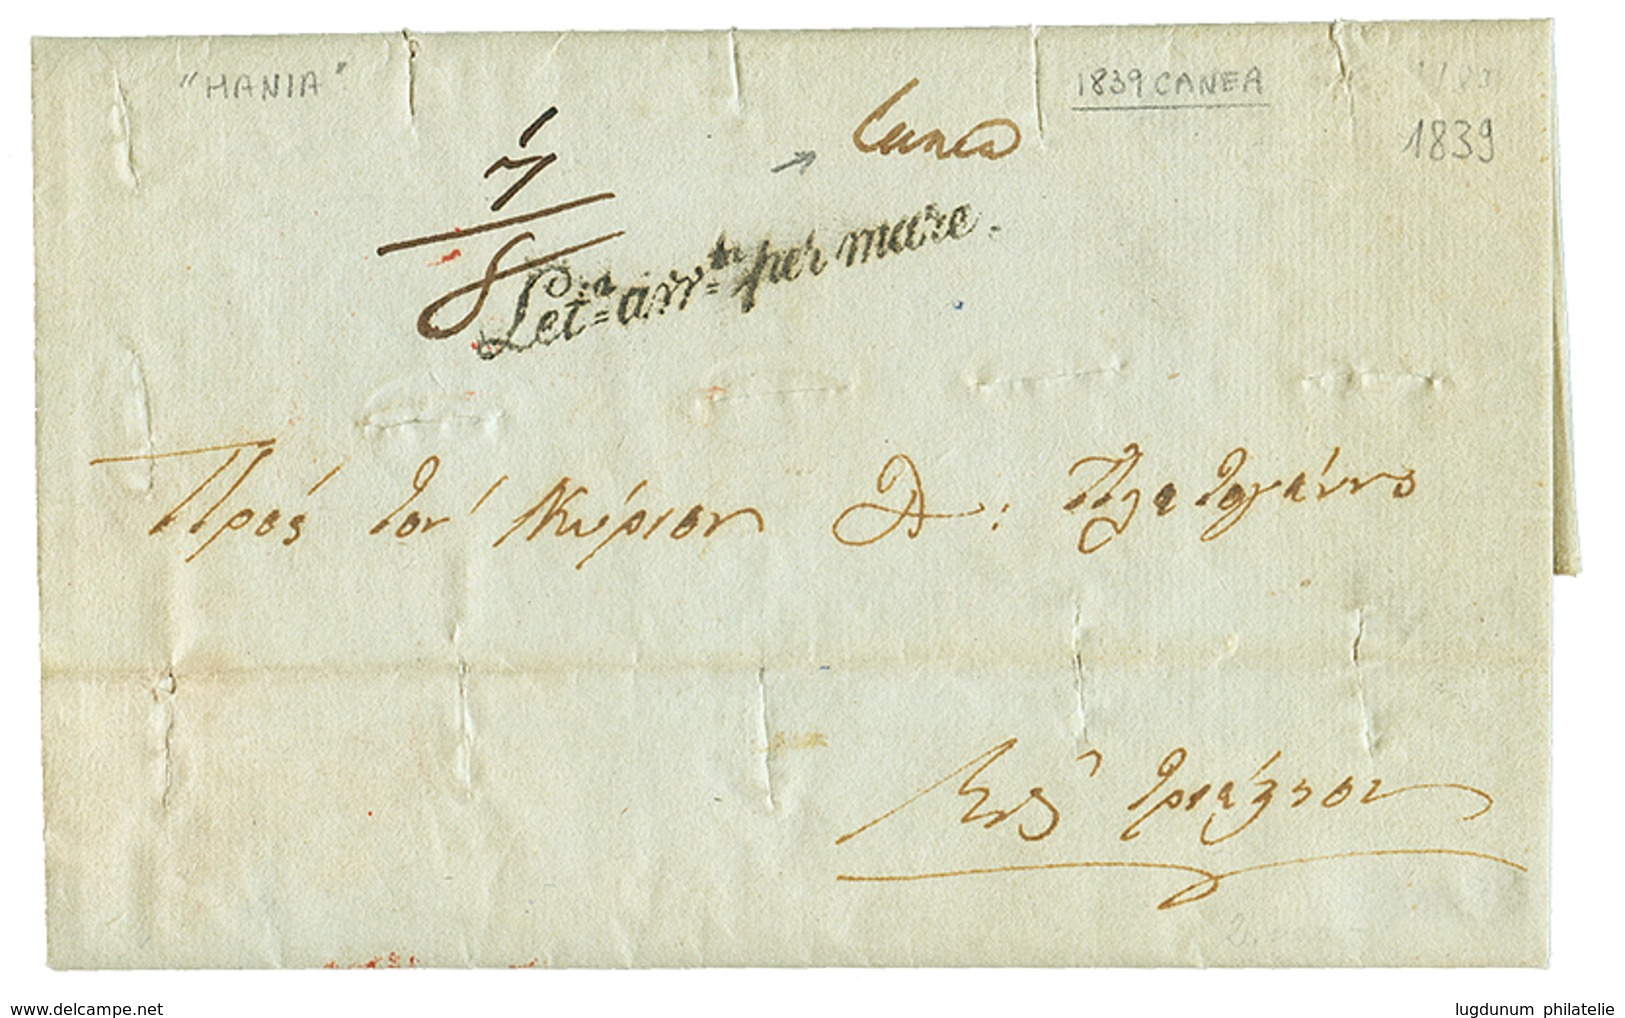 "HANIA"
1839 CANEA
1839
Canea
7
8
Let.ª arr.ta per mare.
Πρὸς τὸν Κύριον
Εἰς Τριέστιον
delcampe.net
lugdunum philatelie